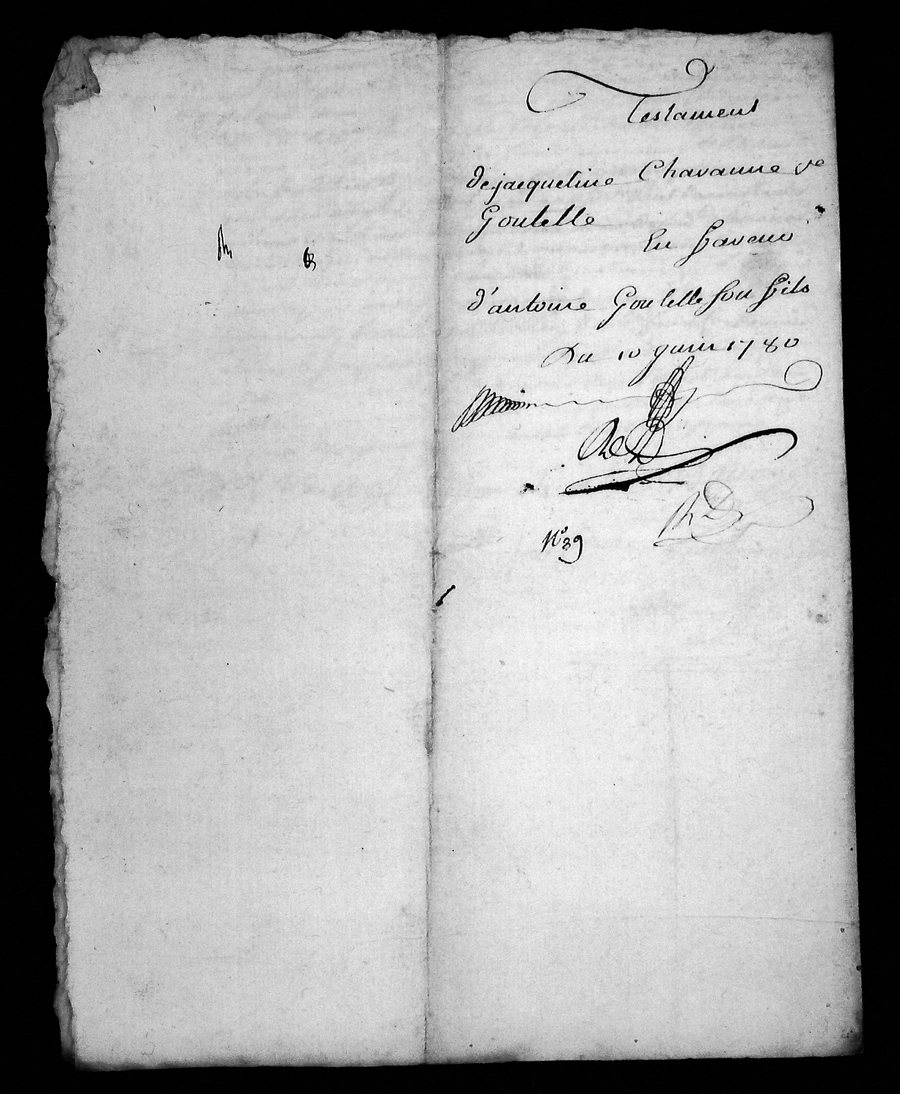 Testament
de jacqueline Chavanne ve
Goutelle
En faveur
d'antoine Goutelle son fils
Du 10 juin 1780
No 39